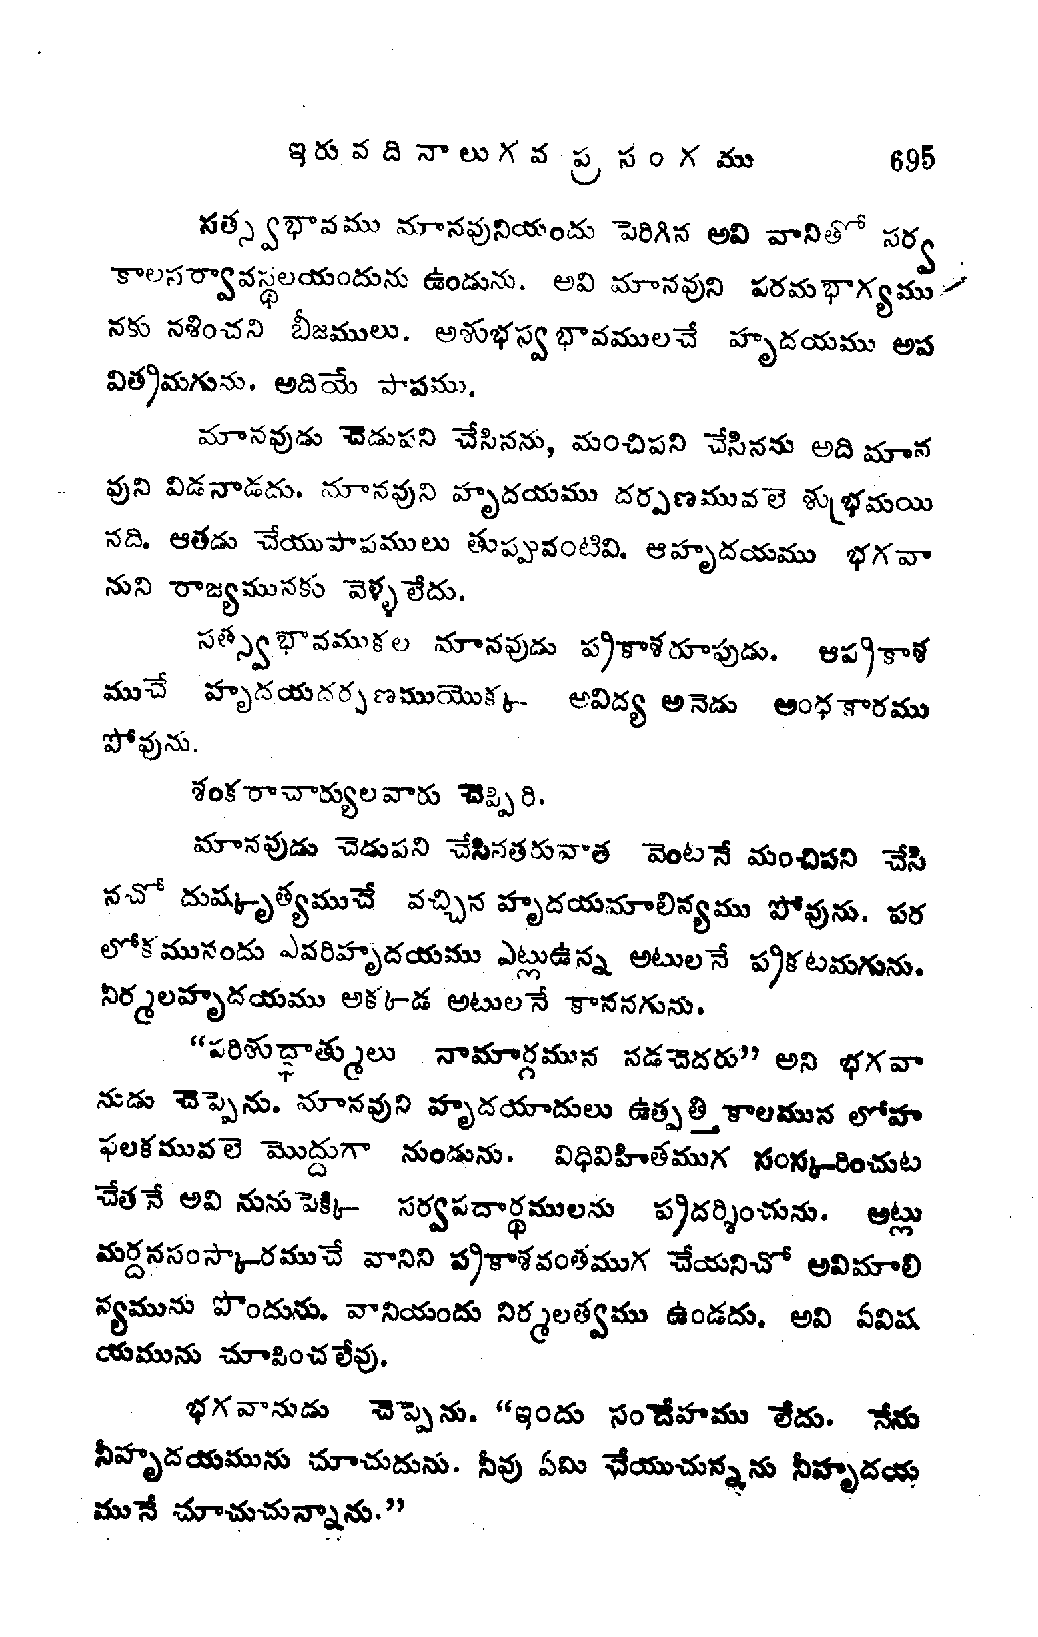 ఇరువదినాలుగవ ప్రసంగము 695
సత్స్వభావము మానవునియందు పెరిగిన అవి వానితో సర్వ
కాలసర్వావస్థలయందును ఉండును. అవి మానవుని పరమభాగ్యము
నకు నశించని బీజములు. అశుభస్వభావములచే హృదయము అప
విత్రమగును. అదియే పాపము.
మానవుడు చెడుపని చేసినను, మంచిపని చేసినను అది మాన
వుని విడనాడదు. మానవుని హృదయము దర్పణమువలె శుభ్రమయి
నది. ఆతడు చేయుపాపములు తుప్పువంటివి. ఆహృదయము భగవా
నుని రాజ్యమునకు వెళ్ళలేదు.
సత్స్వభావముకల మానవుడు ప్రకాశరూపుడు. ఆప్రకాశ
ముచే హృదయదర్పణముయొక్క అవిద్య అనెడు అంధకారము
పోవును.
శంకరాచార్యులవారు చెప్పిరి.
మానవుడు చెడుపని చేసినతరువాత వెంటనే మంచిపని చేసి
నచో దుష్కృత్యముచే వచ్చిన హృదయమాలిన్యము పోవును. పర
లోకమునందు ఎవరిహృదయము ఎట్లుఉన్న అటులనే ప్రకటమగును.
నిర్మలహృదయము అక్కడ అటులనే కాననగును.
“పరిశుద్ధాత్ములు నామార్గమున నడచెదరు” అని భగవా
నుడు చెప్పెను. మానవుని హృదయాదులు ఉత్పత్తి కాలమున లోహ
ఫలకమువలె మొద్దుగా నుండును. విధివిహితముగ సంస్కరించుట
చేతనే అవి నునుపెక్కి సర్వపదార్థములను ప్రదర్శించును. అట్లు
మర్దనసంస్కారముచే వానిని ప్రకాశవంతముగ చేయనిచో అవిమాలి
న్యమును పొందును. వానియందు నిర్మలత్వము ఉండదు. అవి ఏవిష
యమును చూపించలేవు.
భగవానుడు చెప్పెను. “ఇందు సందేహము లేదు. నేను
నీహృదయమును చూచుదును. నీవు ఏమి చేయుచున్నను నీహృదయ
మునే చూచుచున్నాను.”